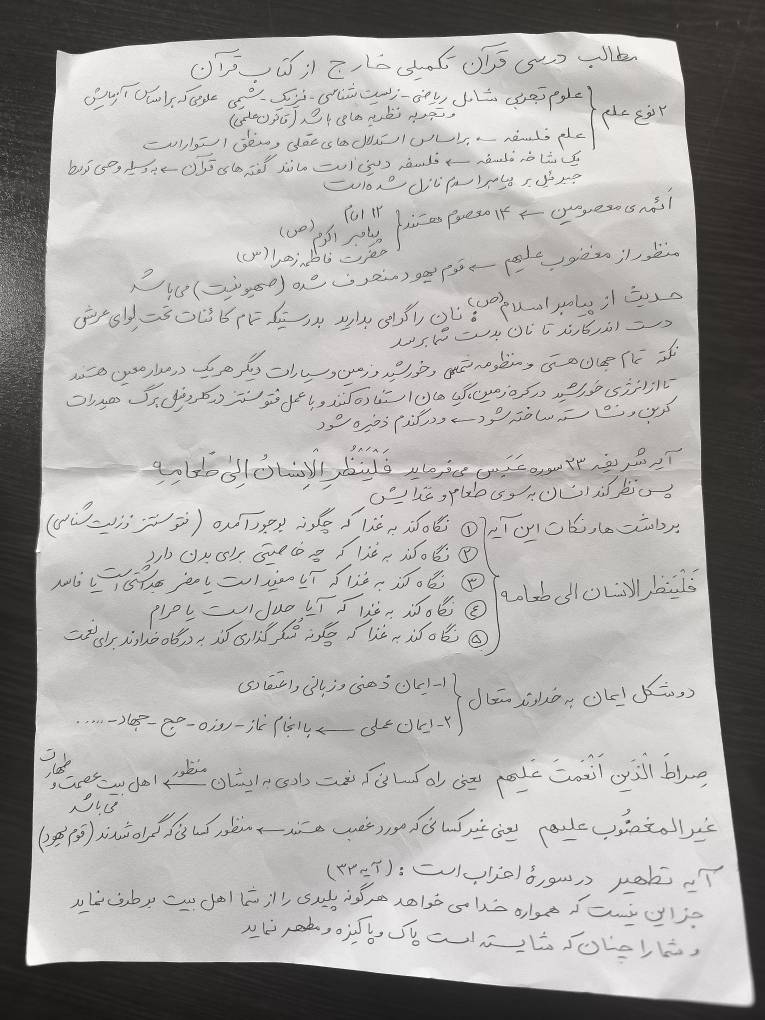 مطالب درسی قرآن تکمیلی خارج از کتاب قرآن
۲ نوع علم
علوم تجربی شامل ریاضی - زیست شناسی - فیزیک - شیمی علومی که براساس آزمایش
و تجربه نظریه های باشد (قانون علمی)
علم فلسفه ← براساس استدلال های عقلی و منطق استوار است
یک شاخه فلسفه ← فلسفه دینی است مانند گفته های قرآن ← بوسیله وحی توسط
جبرئیل بر پیامبر اسلام نازل شده است
اَئمه ی معصومین ← ۱۴ معصوم هستند
۱۲ امام
پیامبر اکرم (ص)
حضرت فاطمه زهرا (س)
منظور از مغضوب علیهم ← قوم یهود منحرف شده (صهیونیت) می باشد
حدیث از پیامبر اسلام (ص): نان را گرامی بدارید بدرستیکه تمام کائنات تحت لوای عرش
دست اندرکارند تا نان بدست شما برسد
نکته تمام جهان هستی و منظومه شمسی و خورشید و زمین و سیارات دیگر هریک در مدار معین هستند
تا از انرژی خورشید در کره زمین، گیاهان استفاده کنند و با عمل فتوسنتز در کلروفیل برگ هیدرات
کربن و نشاسته ساخته شود ← و در گندم ذخیره شود
آیه شریفه ۲۳ سوره عَبَس می فرماید فَلْیَنْظُرِ الْاِنسانُ اِلیٰ طَعامِهِ
پس نظر کند انسان به سوی طعام و غذایش
برداشت ها و نکات این آیه
فَلْیَنظُر الانسان الی طعامه
① نگاه کند به غذا که چگونه بوجود آمده (فتوسنتز و زیست شناسی)
② نگاه کند به غذا که چه خاصیتی برای بدن دارد
③ نگاه کند به غذا که آیا مفید است یا مضر بهداشتی است یا فاسد
④ نگاه کند به غذا که آیا حلال است یا حرام
⑤ نگاه کند به غذا که چگونه شُکرگذاری کند به درگاه خداوند برای نعمت
دو شکل ایمان به خداوند متعال
۱- ایمان ذهنی و زبانی و اعتقادی
۲- ایمان عملی ← با انجام نماز - روزه - حج - جهاد - .....
صِراطَ الَّذینَ اَنْعَمتَ عَلَیهِم یعنی راه کسانی که نعمت دادی به ایشان ← منظور اهل بیت عصمت و طهارت
می باشد
غیر المغضُوب علیهم یعنی غیر کسانی که مورد غضب هستند ← منظور کسانی که گمراه شدند (قوم یهود)
آیه تطهیر در سورهٔ احزاب است: (آیه ۳۳)
جز این نیست که همواره خدا می خواهد هرگونه پلیدی را از شما اهل بیت برطرف نماید
و شما را چنان که شایسته است پاک و پاکیزه و مطهر نماید